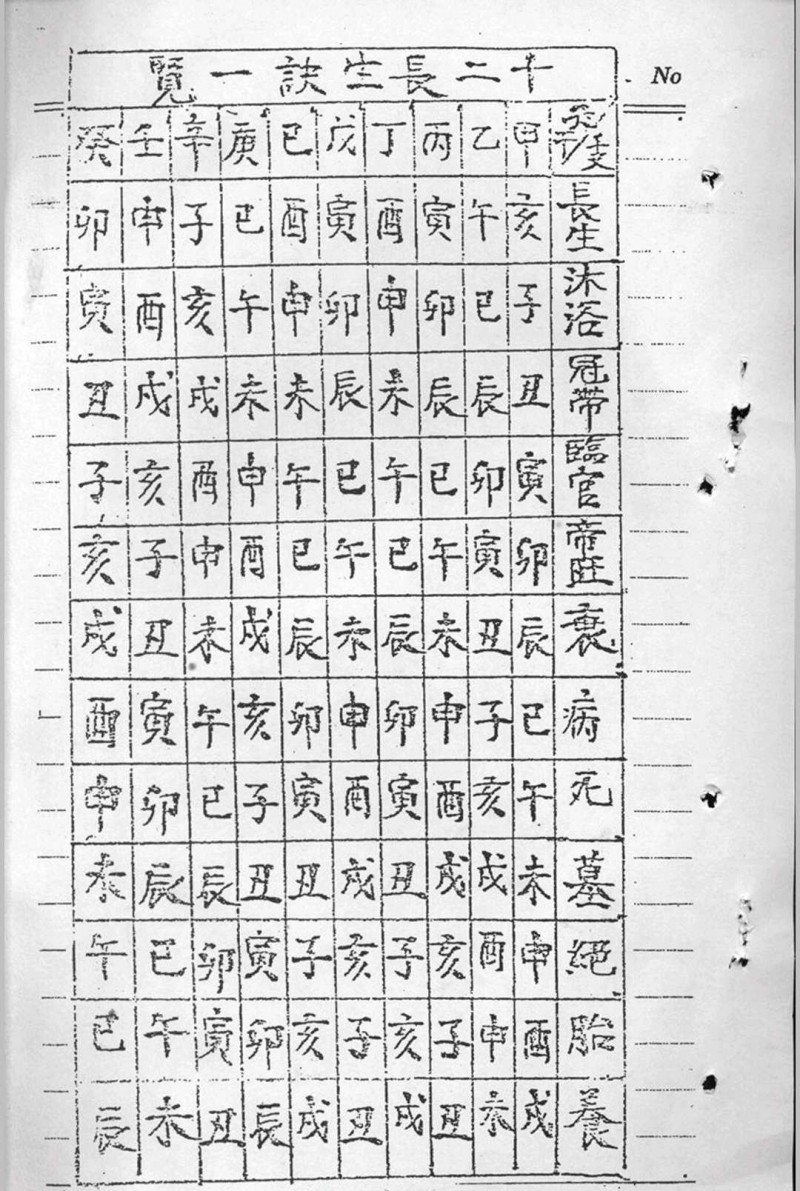 十二長生訣一覽
No
甲 乙 丙 丁 戊 己 庚 辛 壬 癸
長生 亥 午 寅 酉 寅 酉 巳 子 申 卯
沐浴 子 巳 卯 申 卯 申 午 亥 酉 寅
冠帶 丑 辰 辰 未 辰 未 未 戌 戌 丑
臨官 寅 卯 巳 午 巳 午 申 酉 亥 子
帝旺 卯 寅 午 巳 午 巳 酉 申 子 亥
衰 辰 丑 未 辰 未 辰 戌 未 丑 戌
病 巳 子 申 卯 申 卯 亥 午 寅 酉
死 午 亥 酉 寅 酉 寅 子 巳 卯 申
墓 未 戌 戌 丑 戌 丑 丑 辰 辰 未
絕 申 酉 亥 子 亥 子 寅 卯 巳 午
胎 酉 申 子 亥 子 亥 卯 寅 午 巳
養 戌 未 丑 戌 丑 戌 辰 丑 未 辰